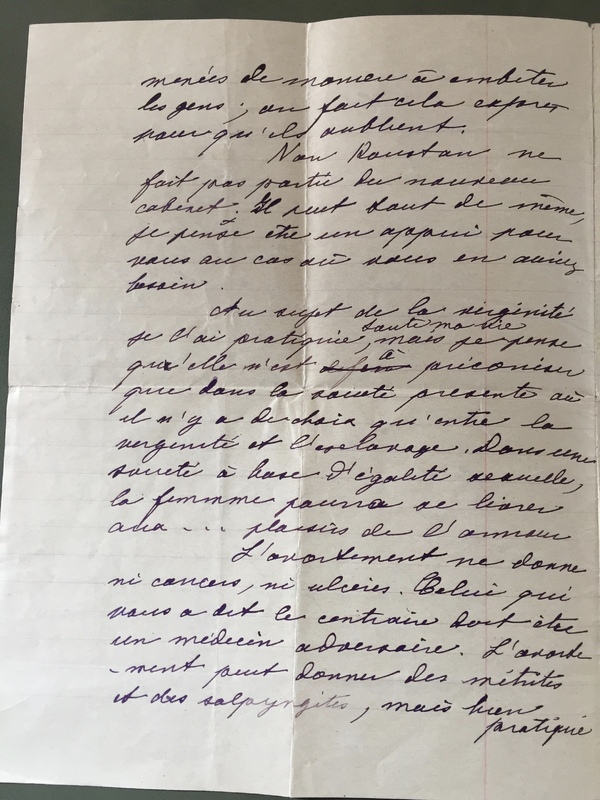 menées de manière à embêter
les gens ; on fait cela exprès
pour qu'ils oublient.
Non Roustan ne
fait pas partie du nouveau
cabinet. Il peut tout de même,
je pense être un appui pour
vous au cas où vous en auriez
besoin.
Au sujet de la virginité
je l'ai pratiquée, toute ma vie mais je pense
qu'elle n'est à préconiser
que dans la société présente où
il n'y a de choix qu'entre la
virginité et l'esclavage. Dans une
société à base d'égalité sexuelle,
la femme pourra se livrer
aux ... plaisirs de l'amour
L'avortement ne donne
ni cancers, ni ulcères. Celui qui
vous a dit le contraire doit être
un médecin adversaire. L'avorte
-ment peut donner des métrites
et des salpyngites, mais bien
pratiqué